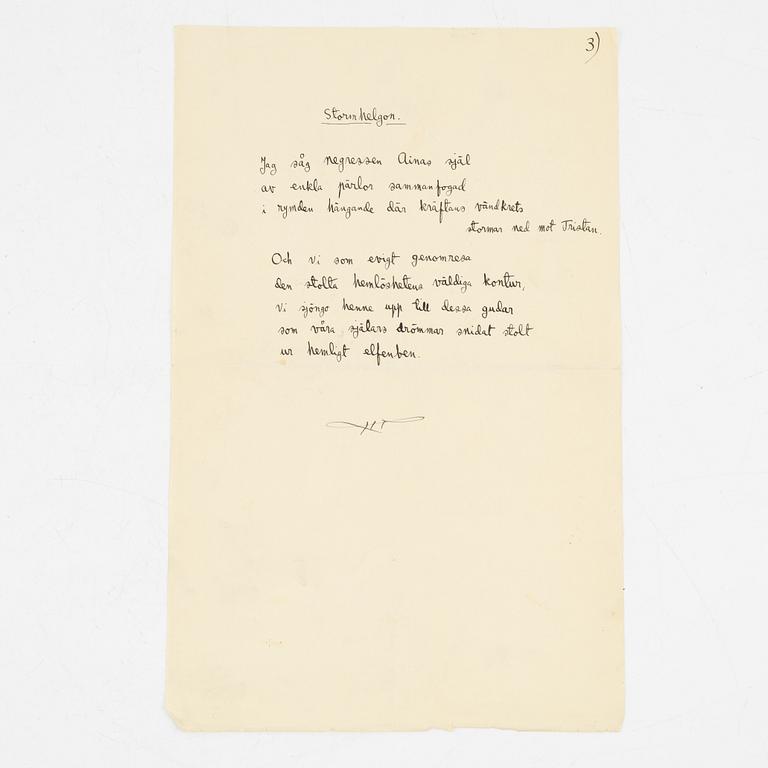 3)
Stormhelgon.
Jag såg negressen Ainas själ
av enkla pärlor sammanfogad
i rymden hängande där kräftans vändkrets
stormar ned mot Tristan.
Och vi som evigt genomresa
den stolta hemlöshetens väldiga kontur,
vi sjöngo henne upp till dessa gudar
som våra själars drömmar snidat stolt
ur hemligt elfenben.